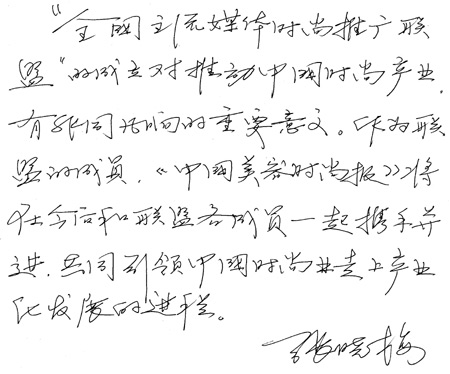 “全国主流媒体时尚推广联
盟”的成立对推动中国时尚产业,
有非同凡响的重要意义。作为联
盟的成员,《中国美容时尚报》将
在今后和联盟各成员一起携手并
进,共同引领中国时尚业走上产业
化发展的进程。
张晓梅